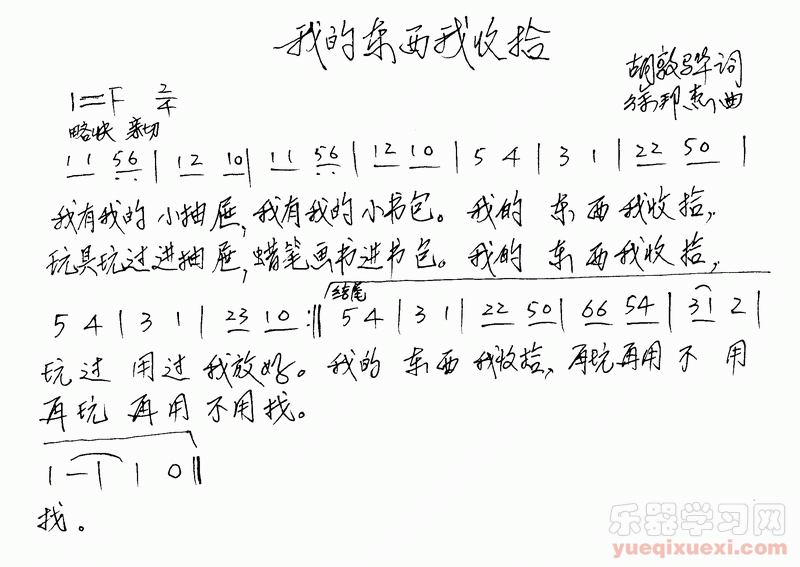 我的东西我收拾
胡敦骅词
1=F 2/4
徐邦杰曲
略快 亲切
1 1 5 6 | 1 2 1 0 | 1 1 5 6 | 1 2 1 0 | 5 4 | 3 1 | 2 2 5 0 |
我有我的小抽屉,我有我的小书包。我的 东西我收拾,
玩具玩过进抽屉,蜡笔画书进书包。我的 东西我收拾,
结尾
5 4 | 3 1 | 2 3 1 0 :‖ 5 4 | 3 1 | 2 2 5 0 | 6 6 5 4 | 3 1 2 |
玩过 用过我放好。我的 东西 我收拾,再玩再用不 用
再玩 再用不用找。
1 - | 1 0 ‖
找。
乐器学习网
yueqixuexi.com